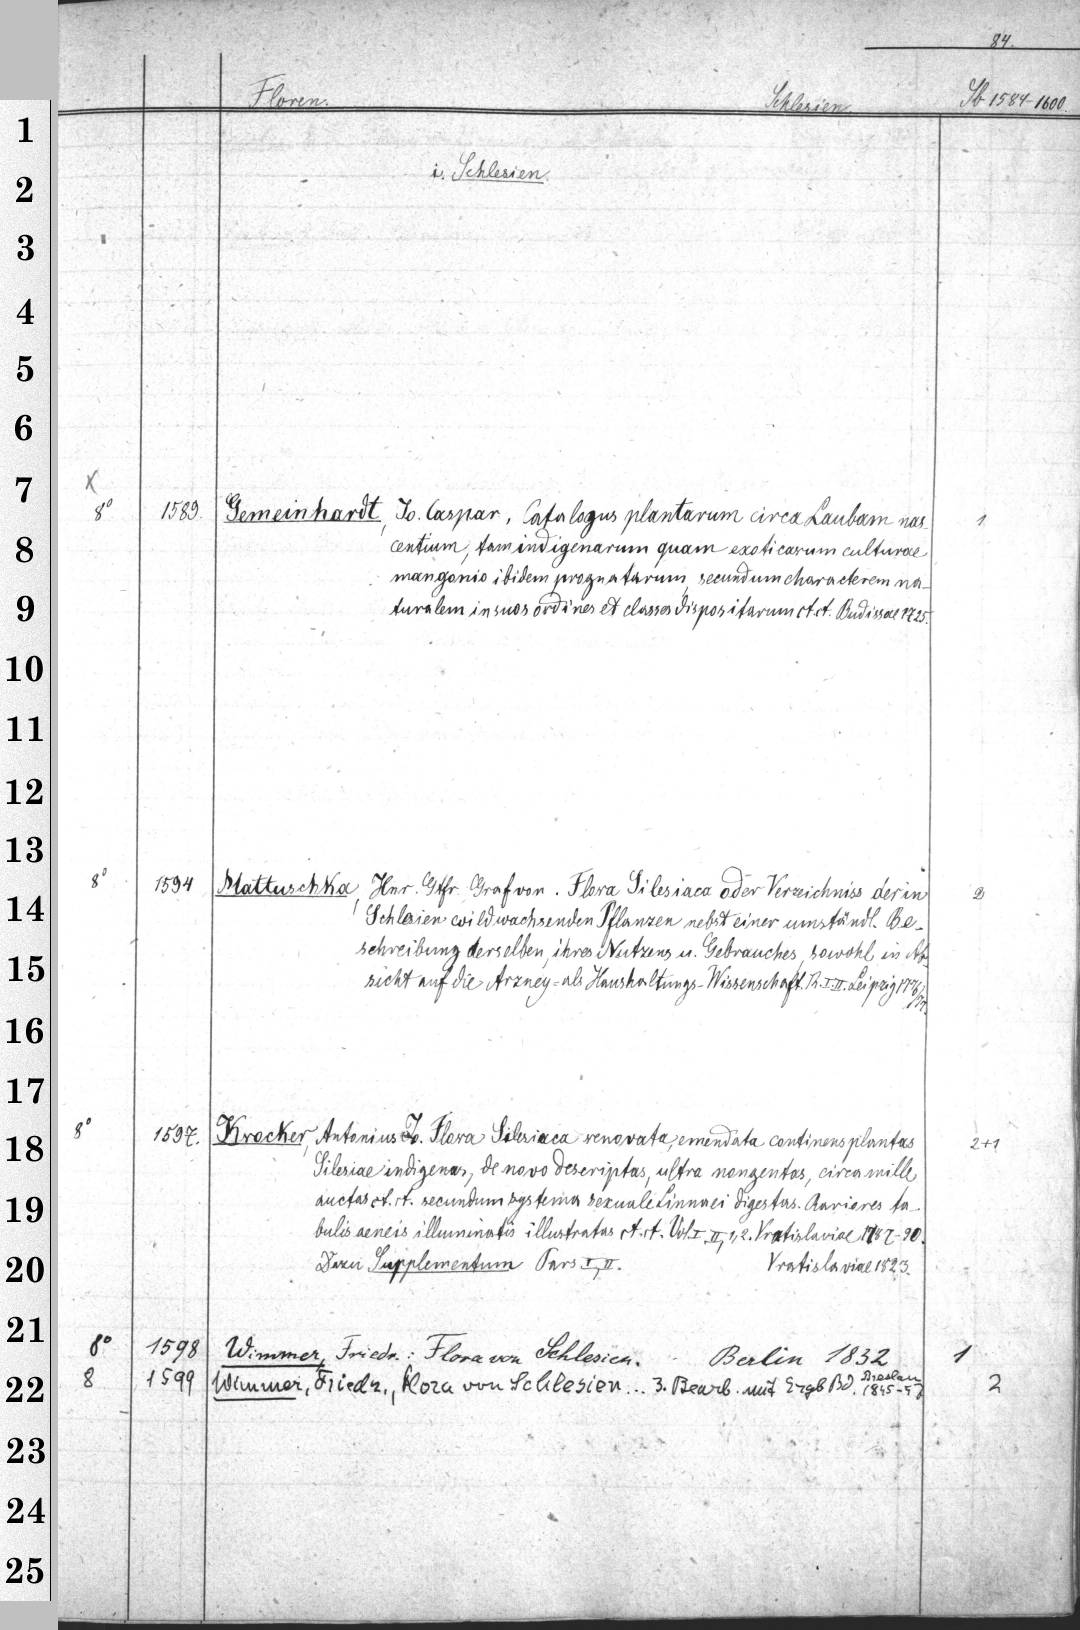 84.
Floren. Schlesien. Sb 1584-1600.
i. Schlesien.
X
8° 1589. Gemeinhardt, Jo. Caspar, Catalogus plantarum circa Laubam nas- 1
centium, tam indigenarum quam exoticarum culturae
mangonio ibidem prognatarum, secundum characterem na-
turalem in suos ordines et classes dispositarum ct. ct. Budissae 1725.
8° 1594 Mattuschka, Hnr. Gtfr. Graf von. Flora Silesiaca oder Verzeichniss der in 2
Schlesien wildwachsenden Pflanzen nebst einer umständl. Be-
schreibung derselben, ihres Nutzens u. Gebrauches, sowohl in Ab-
sicht auf die Arzney- als Haushaltungs-Wissenschaft. Th. I. II. Leipzig 1776/
77.
8° 1597. Krocker, Antonius Jo. Flora Silesiaca renovata, emendata continens plantas 2+1
Silesiae indigenas, de novo descriptas, ultra nongentas, circa mille
auctas ct. ct. secundum systema sexuale Linnaei digestas. Rariores ta-
bulis aeneis illuminatis illustratas ct. ct. Vol. I, II, 1, 2. Vratislaviae 1787-90.
Dazu Supplementum Pars I, II. Vratislaviae 1823.
8° 1598 Wimmer, Friedr.: Flora von Schlesien. Berlin 1832 1
8 1599 Wimmer, Friedr., Flora von Schlesien... 3. Bearb. mit Ergb Bd. Breslau 2
1845-57
1
2
3
4
5
6
7
8
9
10
11
12
13
14
15
16
17
18
19
20
21
22
23
24
25